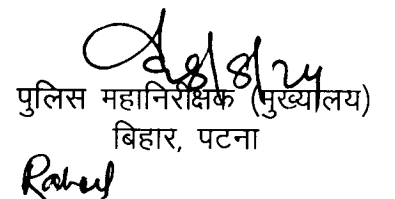 28/8/24
पुलिस महानिरीक्षक (मुख्यालय)
बिहार, पटना
Rahul